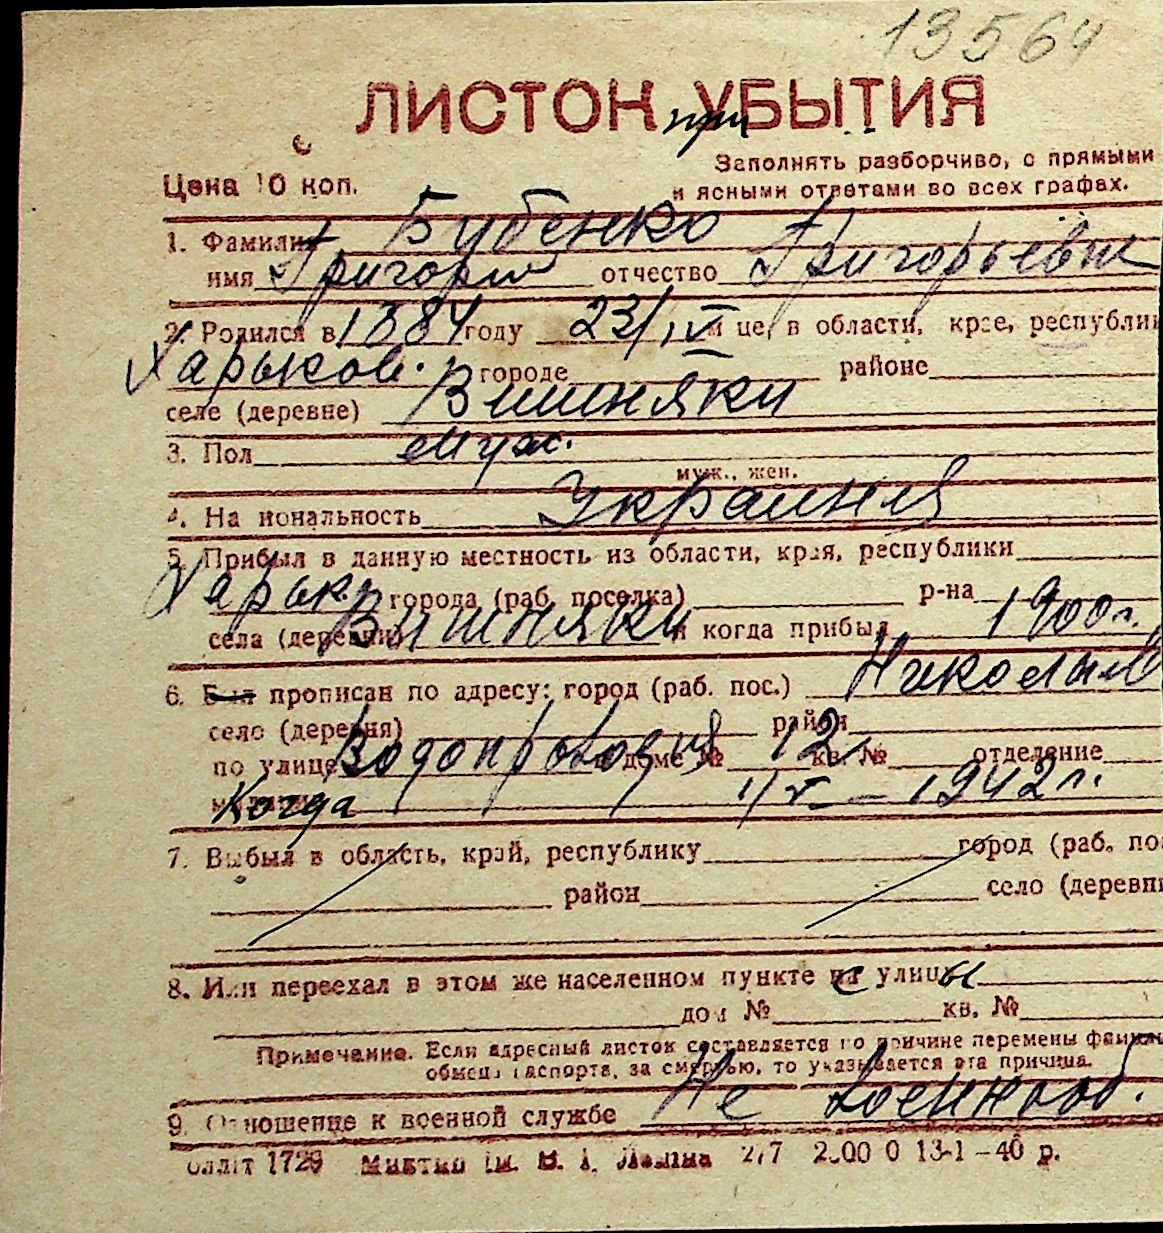 13564
ЛИСТОК УБЫТИЯ
при
Заполнять разборчиво, с прямыми
Цена 10 коп.
и ясными ответами во всех графах.
1. Фамилия Бубенко
имя Григорий отчество Григорьевич
2. Родился в 1884 году 23/IV м це, в области, крае, республик
Харьков. городе районе
селе (деревне) Вишняки
3. Пол Муж.
муж., жен.
4. На иональность Украиния
5. Прибыл в данную местность из области, края, республики
Харьк. города (раб. поселка) р-на
села (деревни) Вишняки и когда прибыл 1900 г.
6. Был прописан по адресу: город (раб. пос.) Николаев
село (деревня) район
по улице Водопроводная в доме № 12 кв. № отделение
Когда 1942 г.
7. Выбыл в область, край, республику город (раб. по
район село (деревн
8. Или переехал в этом же населенном пункте с улицы
дом № кв. №
Примечание. Если адресный листок составляется по причине перемены фамили
обмена паспорта, за смертью, то указывается эта причина.
9. Отношение к военной службе Не военнооб.
1729 2/7 13-1-40 р.